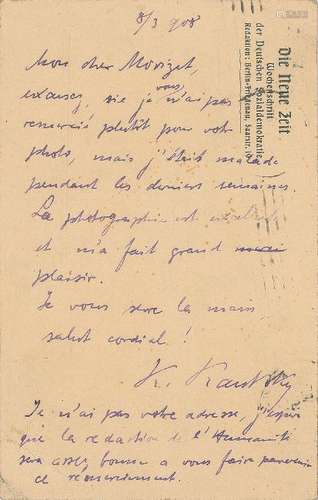 8/3 908
Die Neue Zeit
Wochenschrift
der Deutschen Sozialdemokratie
Redaktion: Berlin-Friedenau, Saarstr.
Mon cher Morizet,
excusez, si je n'ai pas
vous
remercié plutôt pour votre
photo, mais j'étais malade
pendant les derniers semaines.
La photographie est excellente
et m'a fait grand
plaisir.
Je vous serre la main
salut cordial!
K. Kautsky
Je n'ai pas votre adresse, j'espère
que la redaction de l'Humanité
sera assez bonne a vous faire parvenir
ce remerciement.